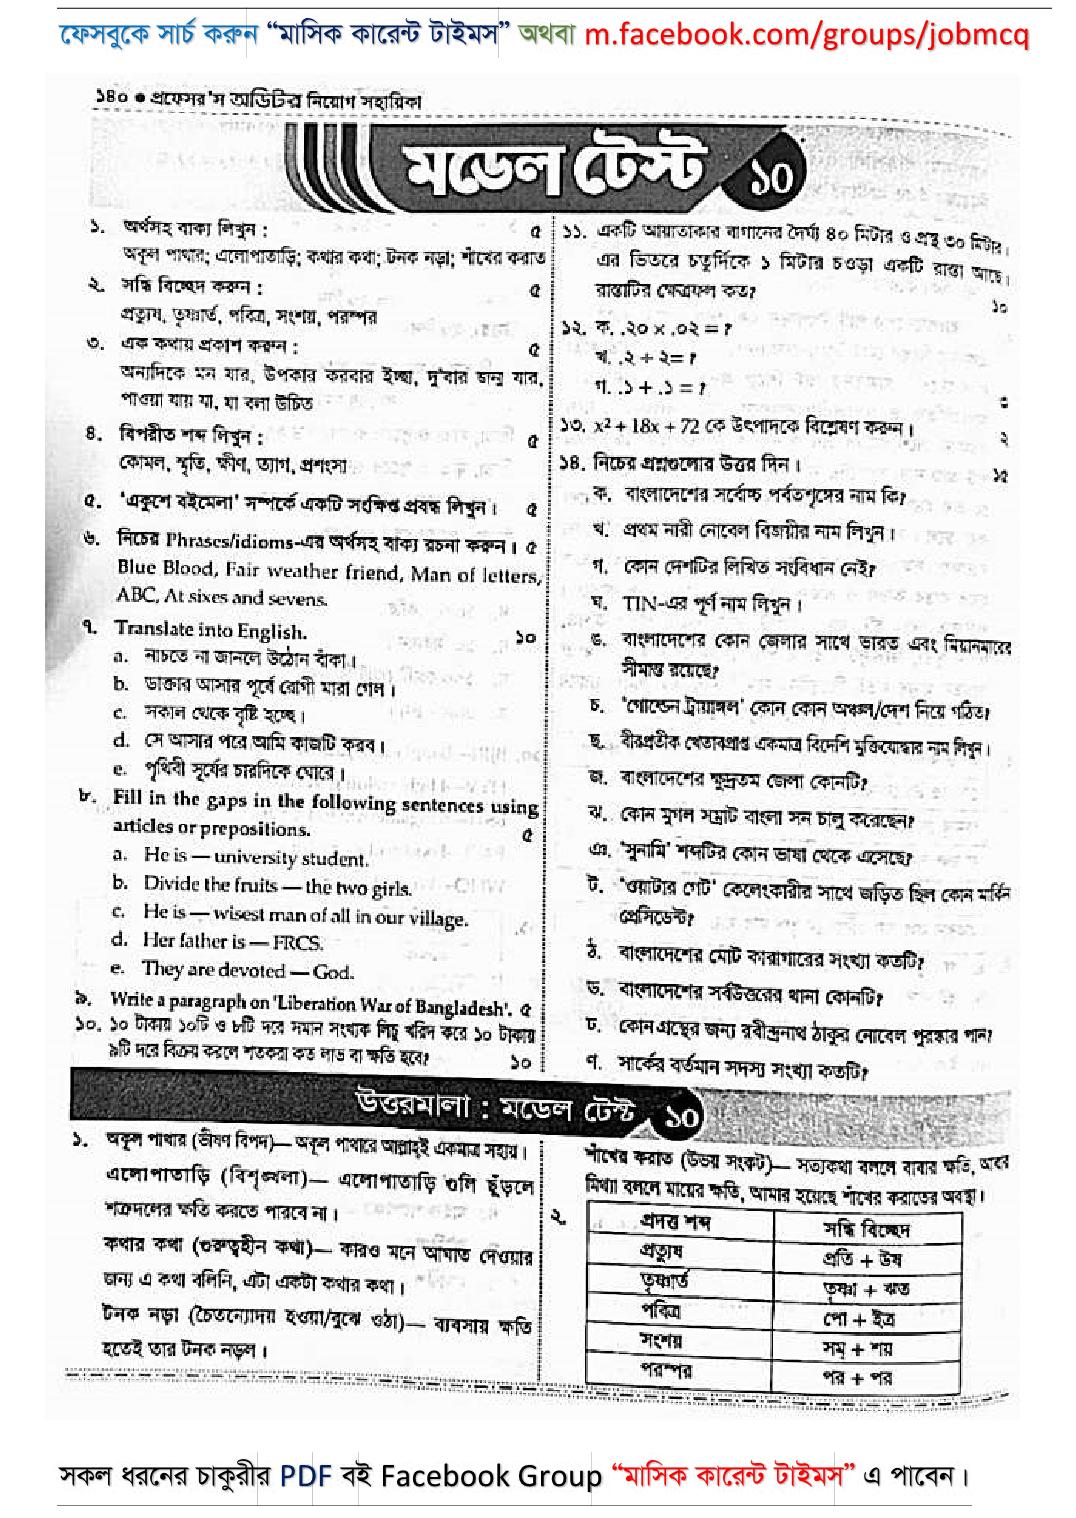 ফেসবুকে সার্চ করুন “মাসিক কারেন্ট টাইমস” অথবা m.facebook.com/groups/jobmcq
১৪০ ● প্রফেসর'স অডিটর নিয়োগ সহায়িকা
মডেল টেস্ট ১০
১. অর্থসহ বাক্য লিখুন : ৫
অকূল পাথার; এলোপাতাড়ি; কথার কথা; টনক নড়া; শাঁখের করাত
২. সন্ধি বিচ্ছেদ করুন : ৫
প্রত্যুষ, তৃষ্ণার্ত, পবিত্র, সংশয়, পরস্পর
৩. এক কথায় প্রকাশ করুন : ৫
অন্যদিকে মন যার, উপকার করবার ইচ্ছা, দু'বার জন্ম যার,
পাওয়া যায় যা, যা বলা উচিত
৪. বিপরীত শব্দ লিখুন : ৫
কোমল, স্মৃতি, ক্ষীণ, ত্যাগ, প্রশংসা
৫. ‘একুশে বইমেলা’ সম্পর্কে একটি সংক্ষিপ্ত প্রবন্ধ লিখুন। ৫
৬. নিচের Phrases/idioms-এর অর্থসহ বাক্য রচনা করুন। ৫
Blue Blood, Fair weather friend, Man of letters,
ABC, At sixes and sevens.
৭. Translate into English. ১০
a. নাচতে না জানলে উঠোন বাঁকা।
b. ডাক্তার আসার পূর্বে রোগী মারা গেল।
c. সকাল থেকে বৃষ্টি হচ্ছে।
d. সে আসার পরে আমি কাজটি করব।
e. পৃথিবী সূর্যের চারদিকে ঘোরে।
৮. Fill in the gaps in the following sentences using
articles or prepositions. ৫
a. He is — university student.
b. Divide the fruits — the two girls.
c. He is — wisest man of all in our village.
d. Her father is — FRCS.
e. They are devoted — God.
৯. Write a paragraph on 'Liberation War of Bangladesh'. ৫
১০. ১০ টাকায় ১০টি ও ৮টি দরে সমান সংখ্যক লিচু খরিদ করে ১০ টাকায়
৯টি দরে বিক্রয় করলে শতকরা কত লাভ বা ক্ষতি হবে? ১০
১১. একটি আয়াতাকার বাগানের দৈর্ঘ্য ৪০ মিটার ও প্রস্থ ৩০ মিটার।
এর ভিতরে চতুর্দিকে ১ মিটার চওড়া একটি রাস্তা আছে।
রাস্তাটির ক্ষেত্রফল কত? ১০
১২. ক. .২০ × .০২ = ?
খ. .২ + ২= ?
গ. .১ + .১ = ? ৩
১৩. x² + 18x + 72 কে উৎপাদকে বিশ্লেষণ করুন। ২
১৪. নিচের প্রশ্নগুলোর উত্তর দিন। ১৫
ক. বাংলাদেশের সর্বোচ্চ পর্বতশৃঙ্গের নাম কি?
খ. প্রথম নারী নোবেল বিজয়ীর নাম লিখুন।
গ. কোন দেশটির লিখিত সংবিধান নেই?
ঘ. TIN-এর পূর্ণ নাম লিখুন।
ঙ. বাংলাদেশের কোন জেলার সাথে ভারত এবং মিয়ানমারের
সীমান্ত রয়েছে?
চ. ‘গোল্ডেন ট্রায়াঙ্গল’ কোন কোন অঞ্চল/দেশ নিয়ে গঠিত?
ছ. বীরপ্রতীক খেতাবপ্রাপ্ত একমাত্র বিদেশি মুক্তিযোদ্ধার নাম লিখুন।
জ. বাংলাদেশের ক্ষুদ্রতম জেলা কোনটি?
ঝ. কোন মুগল সম্রাট বাংলা সন চালু করেছেন?
ঞ. ‘সুনামি’ শব্দটির কোন ভাষা থেকে এসেছে?
ট. ‘ওয়াটার গেট’ কেলেংকারীর সাথে জড়িত ছিল কোন মার্কিন
প্রেসিডেন্ট?
ঠ. বাংলাদেশের মোট কারাগারের সংখ্যা কতটি?
ড. বাংলাদেশের সর্বউত্তরের থানা কোনটি?
ঢ. কোন গ্রন্থের জন্য রবীন্দ্রনাথ ঠাকুর নোবেল পুরস্কার পান?
ণ. সার্কের বর্তমান সদস্য সংখ্যা কতটি?
উত্তরমালা : মডেল টেস্ট ১০
১. অকূল পাথার (ভীষণ বিপদ)— অকূল পাথারে আল্লাহ্ই একমাত্র সহায়।
এলোপাতাড়ি (বিশৃঙ্খলা)— এলোপাতাড়ি গুলি ছুঁড়লে
শত্রুদলের ক্ষতি করতে পারবে না।
কথার কথা (গুরুত্বহীন কথা)— কারও মনে আঘাত দেওয়ার
জন্য এ কথা বলিনি, এটা একটা কথার কথা।
টনক নড়া (চৈতন্যোদয় হওয়া/বুঝে ওঠা)— ব্যবসায় ক্ষতি
হতেই তার টনক নড়ল।
শাঁখের করাত (উভয় সংকট)— সত্যকথা বললে বাবার ক্ষতি, আবার
মিথ্যা বললে মায়ের ক্ষতি, আমার হয়েছে শাঁখের করাতের অবস্থা।
২. প্রদত্ত শব্দ সন্ধি বিচ্ছেদ
প্রত্যুষ প্রতি + উষ
তৃষ্ণার্ত তৃষ্ণা + ঋত
পবিত্র পো + ইত্র
সংশয় সম্ + শয়
পরস্পর পর + পর
সকল ধরনের চাকুরীর PDF বই Facebook Group “মাসিক কারেন্ট টাইমস” এ পাবেন।